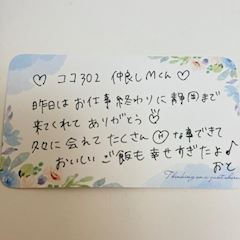 ♡ ココ302 仲良しMくん ♡
昨日はお仕事終わりに静岡まで
来てくれてありがとう♡
久々に会えてたくさんHな事できて
おいしいご飯も幸せすぎたよ♪
おと
Thinking on a quiet shore